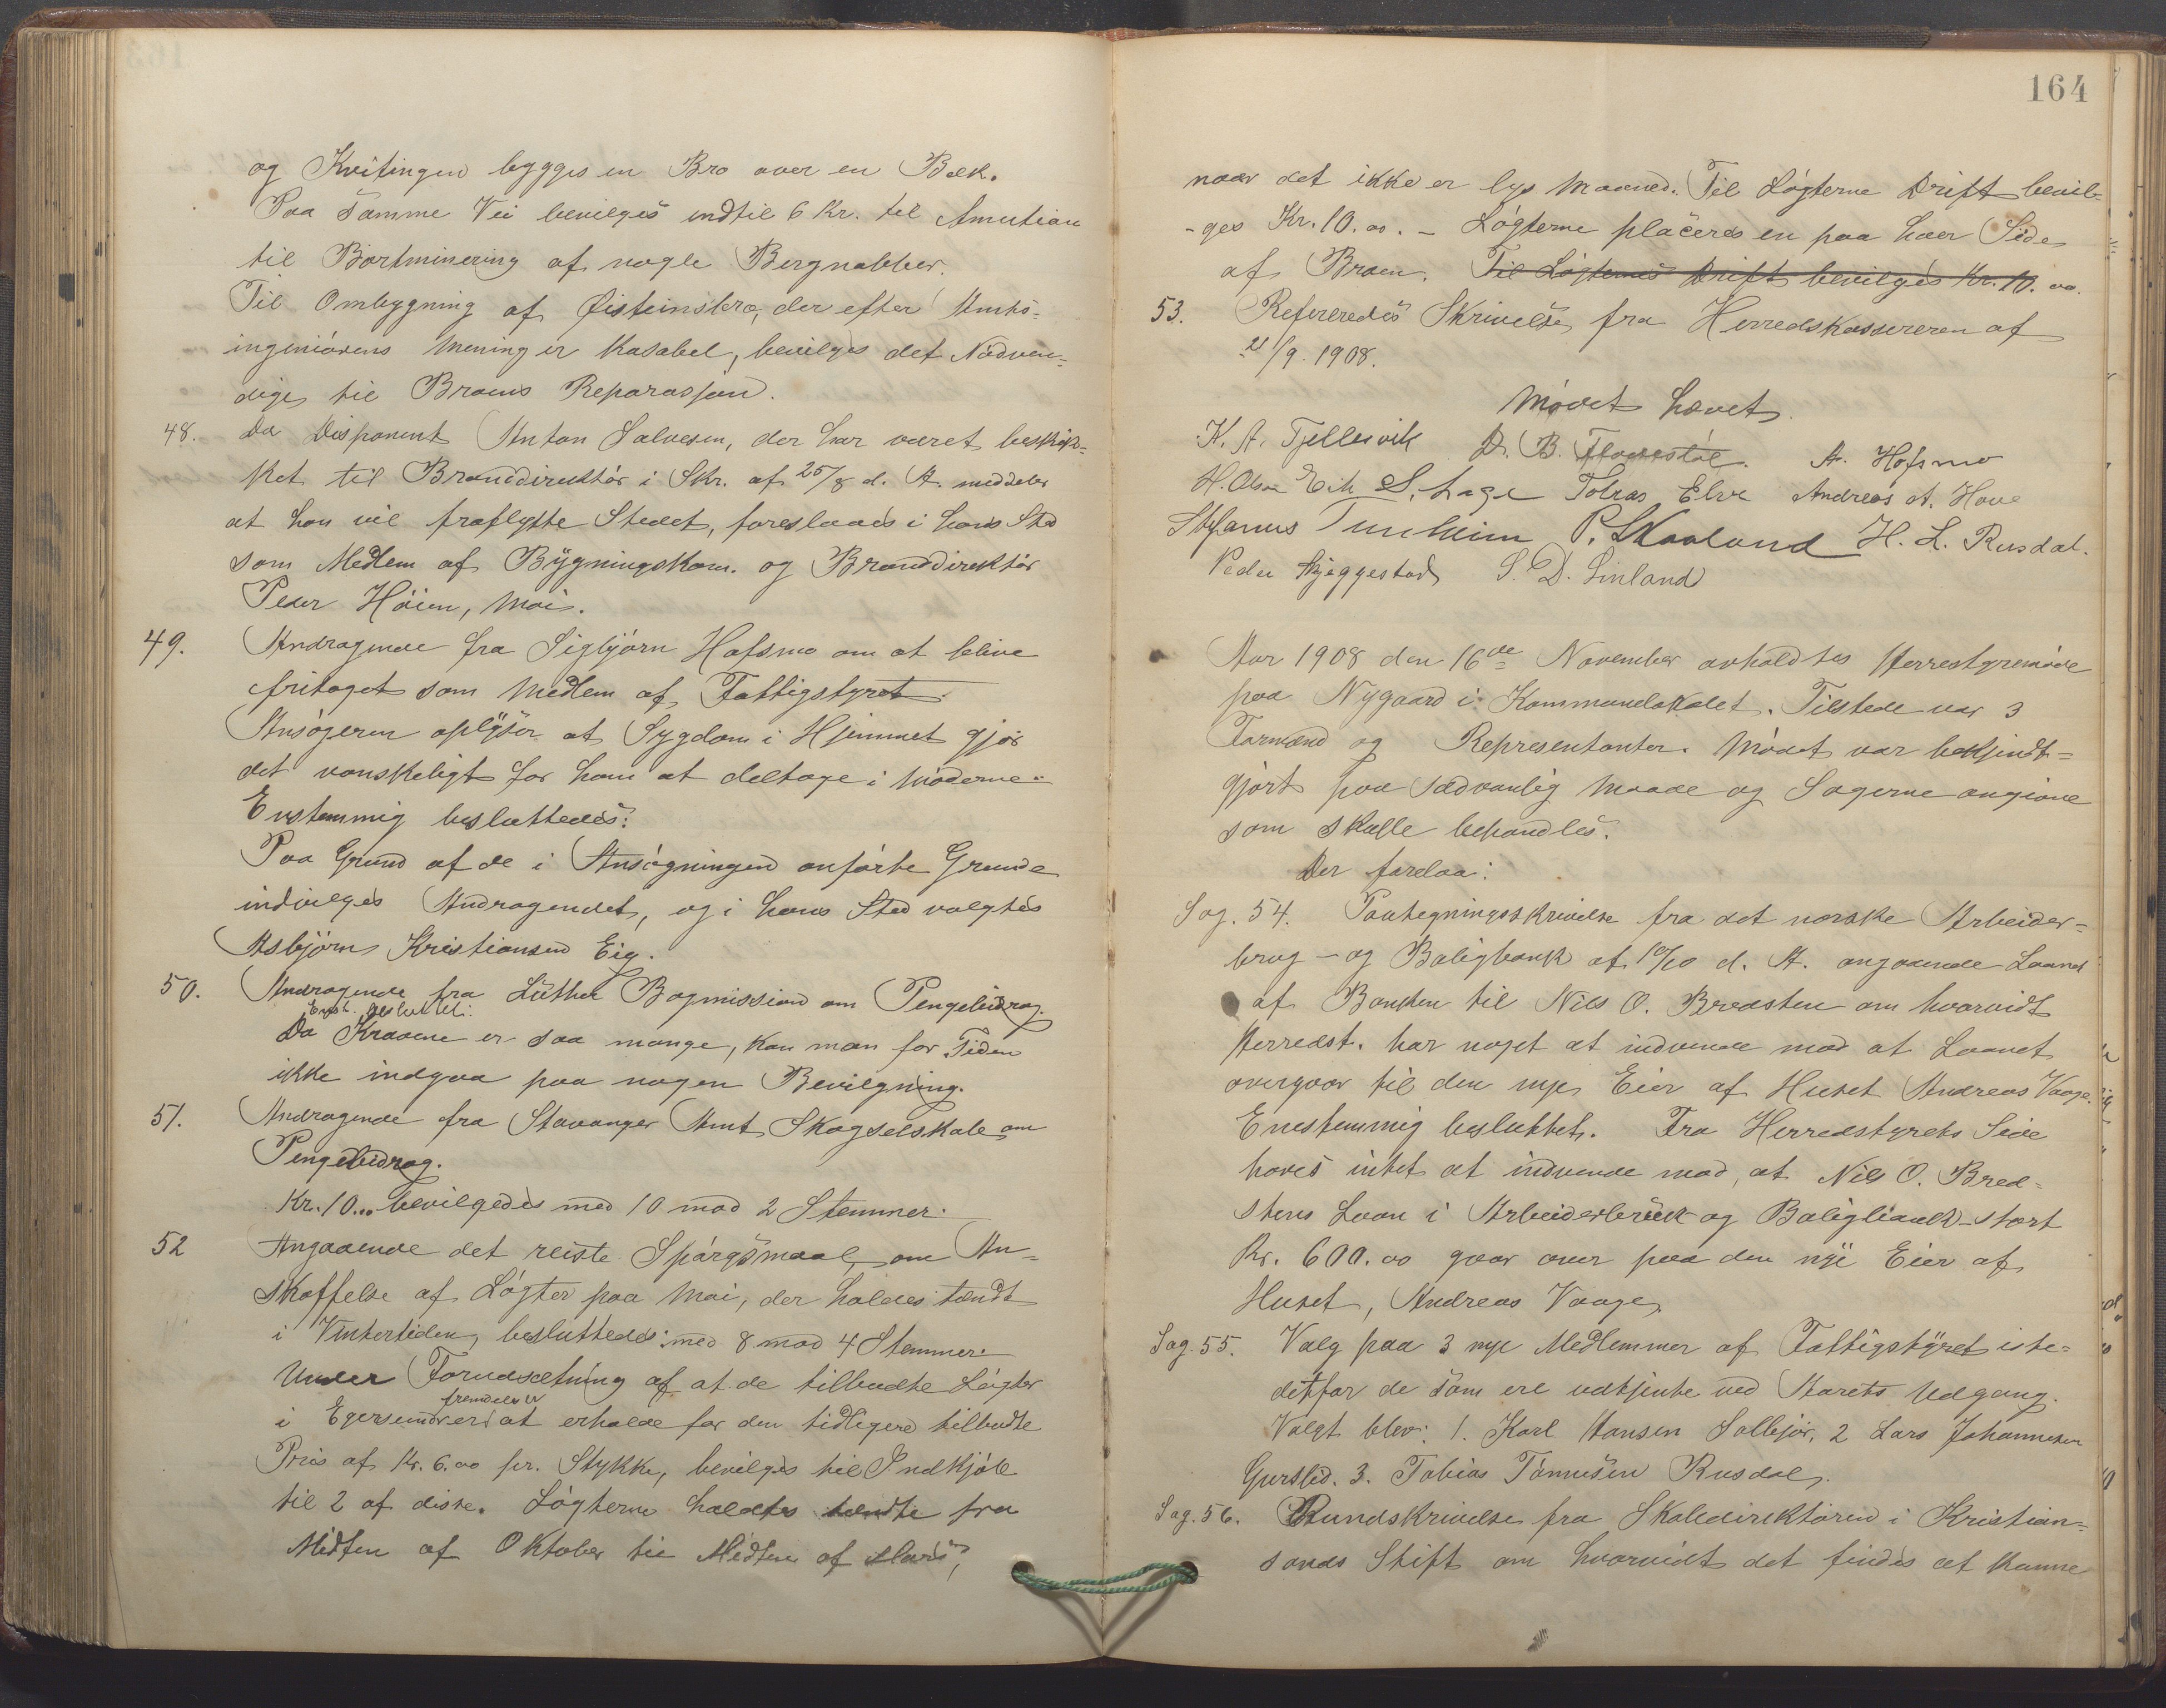 og Kvitingen bygges en Bro over en Bæk.
Paa samme Vei bevilges indtil 6 Kr. til Amution
til Bortminering af nogle Bergnabber.
Til Ombygning af Øisteinsbro, der efter Amts-
ingeniørens Mening er kasabel, bevilges det Nødven-
dige til Broens Reparasjon.
48. Da Disponent Anton Salvesen, der har været beskik-
ket til Branddirektør i Skr. af 25/8 d. A. meddeler
at han vil fraflytte Stedet, foreslaaes i hans Sted
som Medlem af Bygningskom. og Branddirektør
Peder Høien, Moi.
49. Andragende fra Sigbjørn Hofsmo om at blive
fritaget som Medlem af Fattigstyret.
Ansøgeren oplyser at Sygdom i Hjemmet gjør
det vanskeligt for ham at deltage i Møderne.
Enstemmig besluttedes:
Paa Grund af de i Ansøgningen anførte Grunde
indvilges Andragendet, og i hans Sted valgtes
Asbjørn Kristiansen Eig.
50. Andragende fra Luther Bogmission om Pengebidrag.
Enst. besluttet:
Da Kravene er saa mange, kan man for Tiden
ikke indgaa paa nogen Bevilgning.
51. Andragende fra Stavanger Amt Skogselskab om
Pengebidrag.
Kr. 10.. bevilgedes med 10 mod 2 Stemmer.
52 Angaaende det reiste Spørgsmaal, om An-
skaffelse af Løgter paa Moi, der holdes tændt
i Vintertiden, besluttedes med 8 mod 4 Stemmer:
Under Forudsætning af at de tilbudte Løgter
fremdeles
i Egersund er at erholde for den tidligere tilbudte
Pris af Kr. 6.00 pr. Stykke, bevilges til Indkjøb
til 2 af disse. Løgterne holdtes tændte fra
Midten af Oktober til Midten af Mars,
164
naar det ikke er lys Maaned. Til Løgterne Drift bevil-
-ges Kr. 10.00. - Løgterne placeres en paa hver Side
af Broen. Til Løgternes Drift bevilges Kr. 10.00.
53. Refereredes Skrivelse fra Herredskassereren af
21/9. 1908.
Mødet hævet.
K. A. Tjellesvik D. B. A. Hofsmo
H. Olsen Eik S. Lage Tobias Elve Andreas A. Hove
Stefanus Tunheim P. Skaaland H. L. Rusdal.
Peder Skjeggestad S. D. Linland
Aar 1908 den 16de November avholdtes Herrestyremøde
paa Nygaard i Kommunelokalet. Tilstede var 3
Formænd og Representanter. Mødet var bekjendt-
gjørt paa sædvanlig Maade og Sagerne angivne
som skulle behandles.
Der forelaa:
Sag. 54. Paategningsskrivelse fra det norske Arbeider-
brug - og Boligbank af 10/10 d. A. angaaende Laanet
af Banken til Nils O. Bredsten om hvorvidt
Herredst. har noget at indvende mod at Laanet
overgaar til den nye Eier af Huset Andreas Vaage.
Enestemmig besluttet. Fra Herredstyrets Side
haves intet at indvende mod, at Nils O. Bred-
stens Laan i Arbeiderbruk og Boligbank - stort
Kr. 600.00 gaar over paa den nye Eier af
Huset, Andreas Vaage.
Sag. 55. Valg paa 3 nye Medlemmer af Fattigstyret iste-
detfor de som ere udtjente ved Aarets Udgang.
Valgt blev: 1. Karl Hansen Sollesjør, 2 Lars Johannesen
Gursled. 3. Tobias Tønnesen Rusdal.
Sag. 56. Rundskrivelse fra Skoledirektøren i Kristian-
sands Stift om hvorvidt det findes at kunne